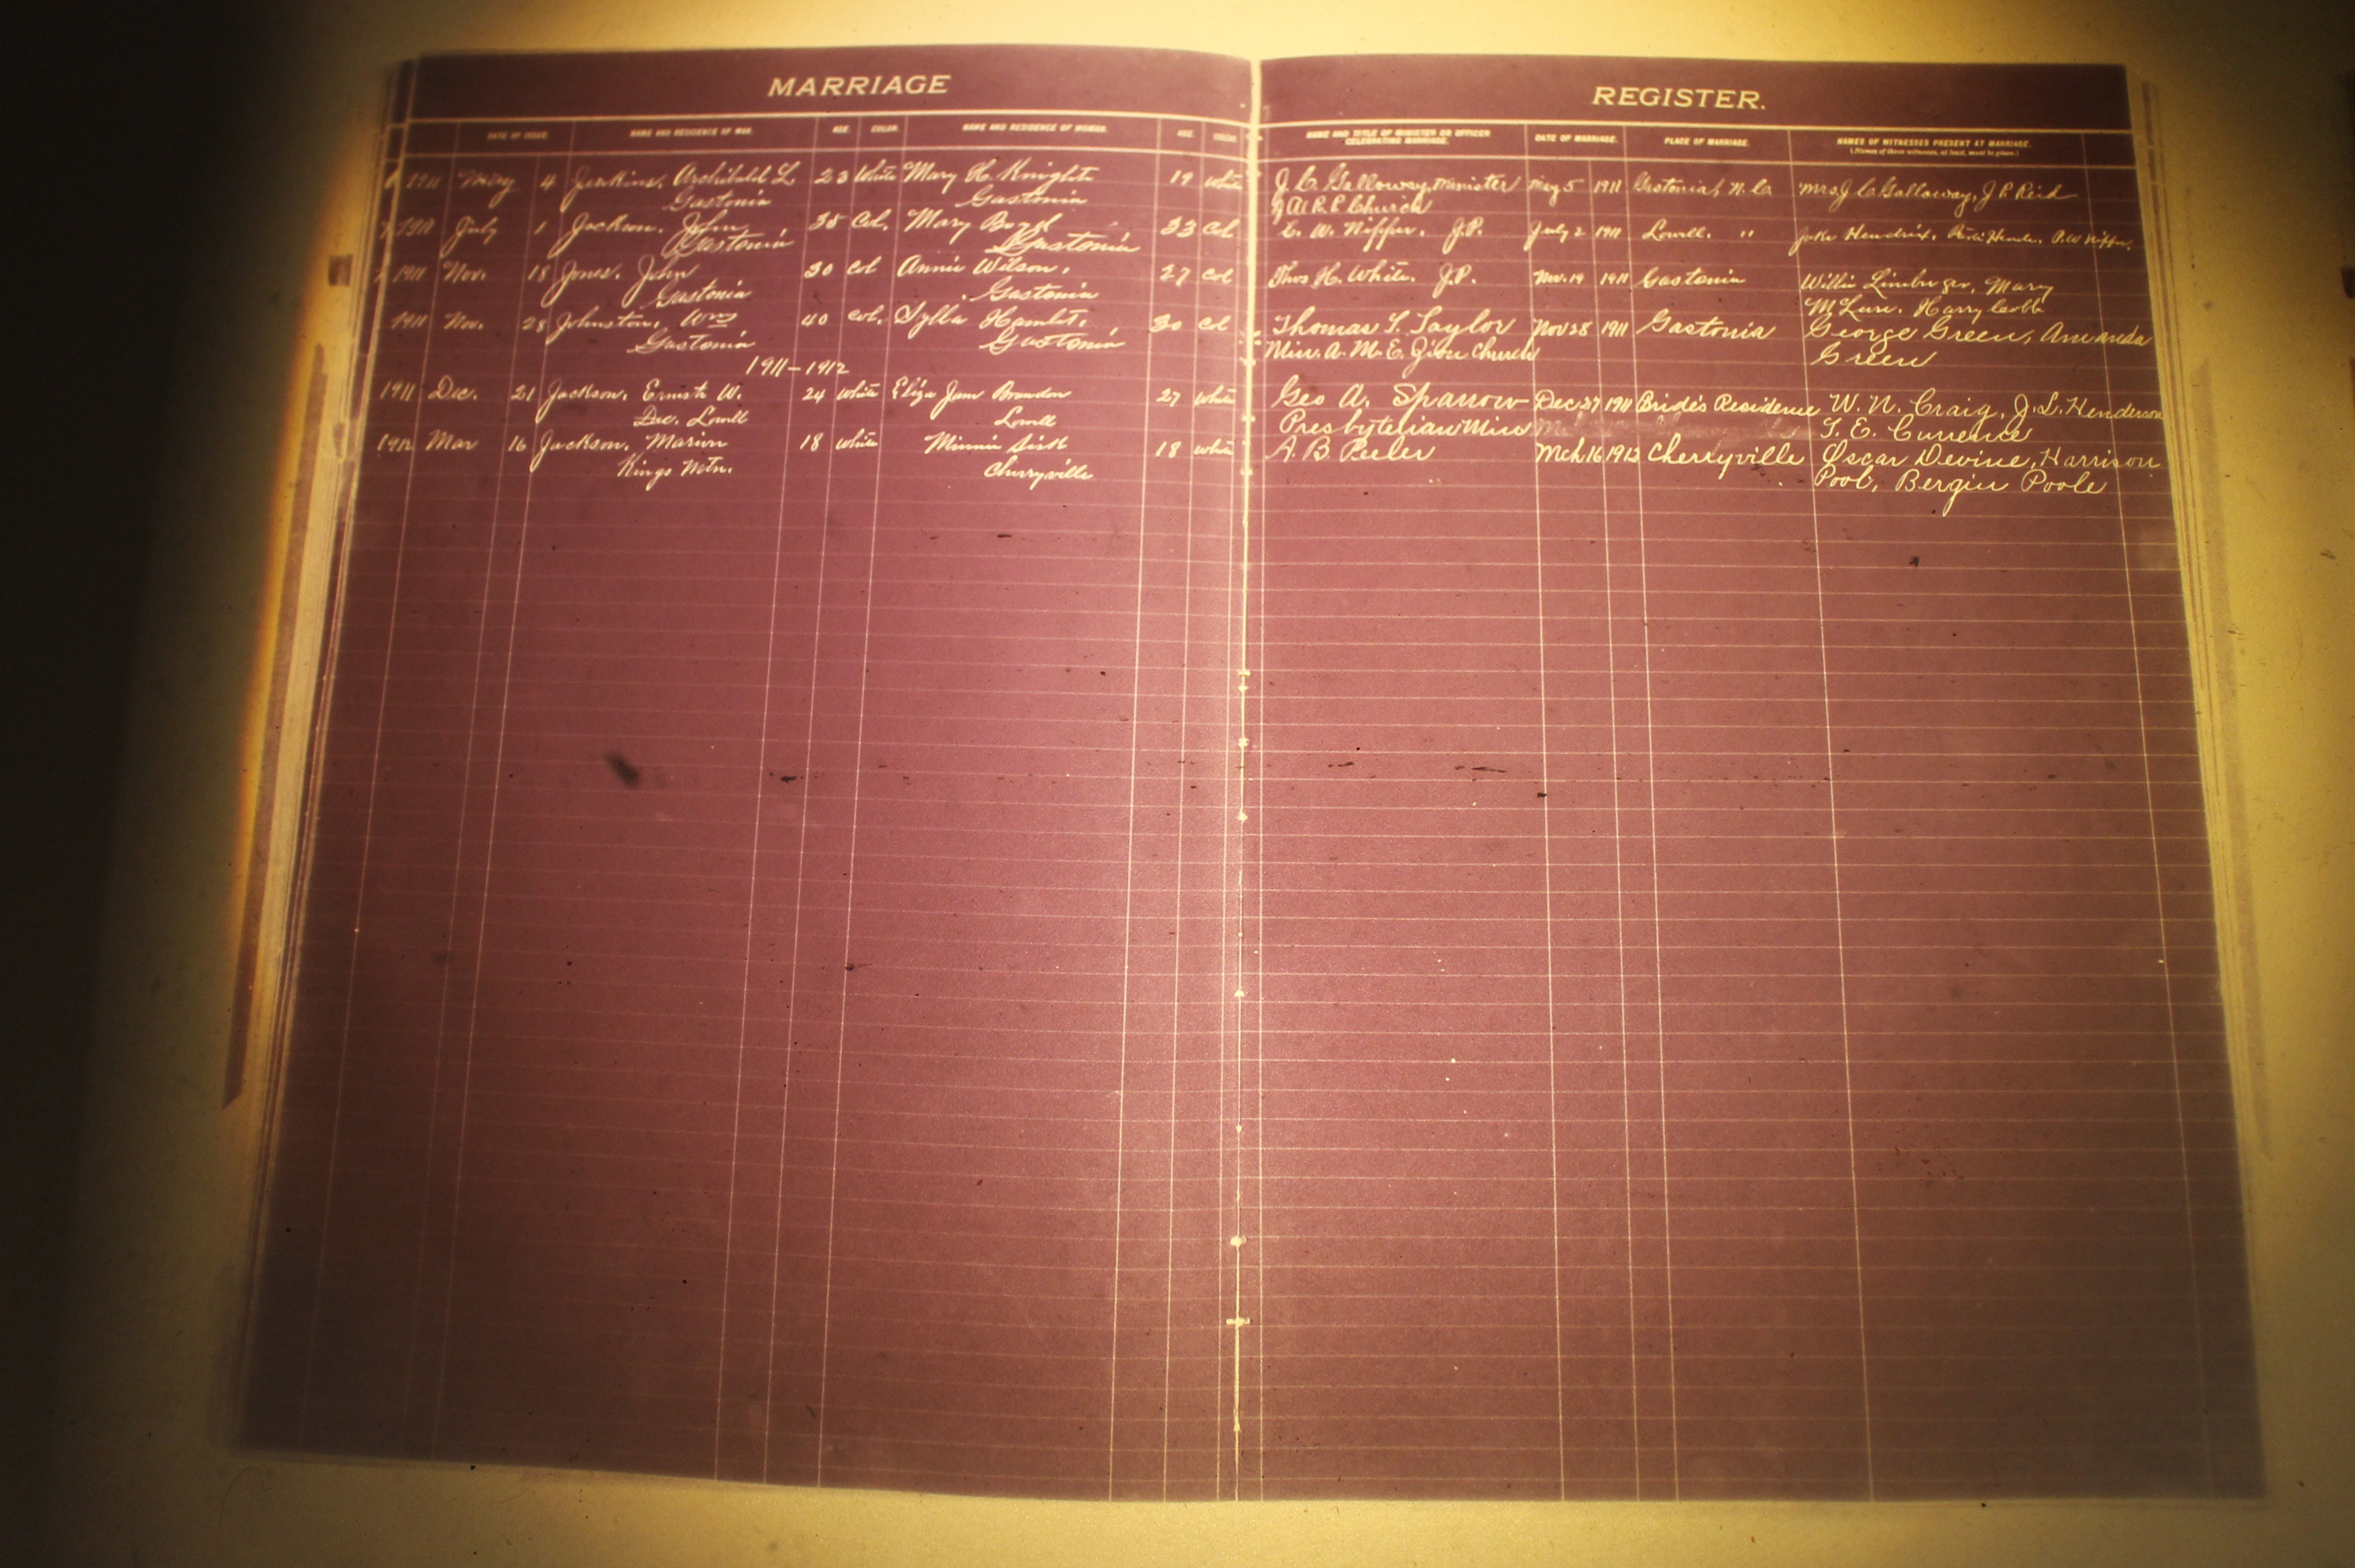 MARRIAGE
DATE OF ISSUE. NAME AND RESIDENCE OF MAN. AGE. COLOR. NAME AND RESIDENCE OF WOMAN. AGE. COLOR
1911 May 4 Jenkins, Archibald L 23 White Mary H. Knight 19 White
Gastonia Gastonia
1911 July 1 Jackson, John, 35 Col. Mary Boyd 33 Col
Gastonia Gastonia
1911 Nov. 18 Jones, John 30 Col Annie Wilson, 27 Col
Gastonia Gastonia
1911 Nov. 28 Johnston, Wm 40 Col. Sylla Hamlet, 30 Col
Gastonia Gastonia
1911-1912
1911 Dec. 21 Jackson, Ernest W. 24 White Eliza Jane Brandon 27 White
Dec. Lowell Lowell
1912 Mar 16 Jackson, Marion 18 White Minnie Sisk 18 White
Kings Mtn. Cherryville
REGISTER.
NAME AND TITLE OF MINISTER OR OFFICER DATE OF MARRIAGE. PLACE OF MARRIAGE. NAMES OF WITNESSES PRESENT AT MARRIAGE.
CELEBRATING MARRIAGE. (Names of three witnesses, at least, must be given.)
J. C. Galloway, Minister May 5 1911 Gastonia, N. C. Mrs J. C. Galloway, J. P. Reid
of A. R. P. Church
C. W. Nipper. J.P. July 2 1911 Lowell. " Jake Hendrix, P.W Nipper,
Thos H. White. J.P. Nov. 19 1911 Gastonia Willie Linebarger, Mary
McLure. Harry Cobb
Thomas F. Taylor Nov 28 1911 Gastonia George Green, Amanda
Min. A. M. E. Zion Church Green
Geo A. Sparrow Dec 27 1911 Bride's Residence W. N. Craig, J. L. Henderson
Presbyterian Min T. E. Currence
A. B. Peeler Mch 16 1912 Cherryville Oscar Devine, Harrison
Pool, Bergin Poole